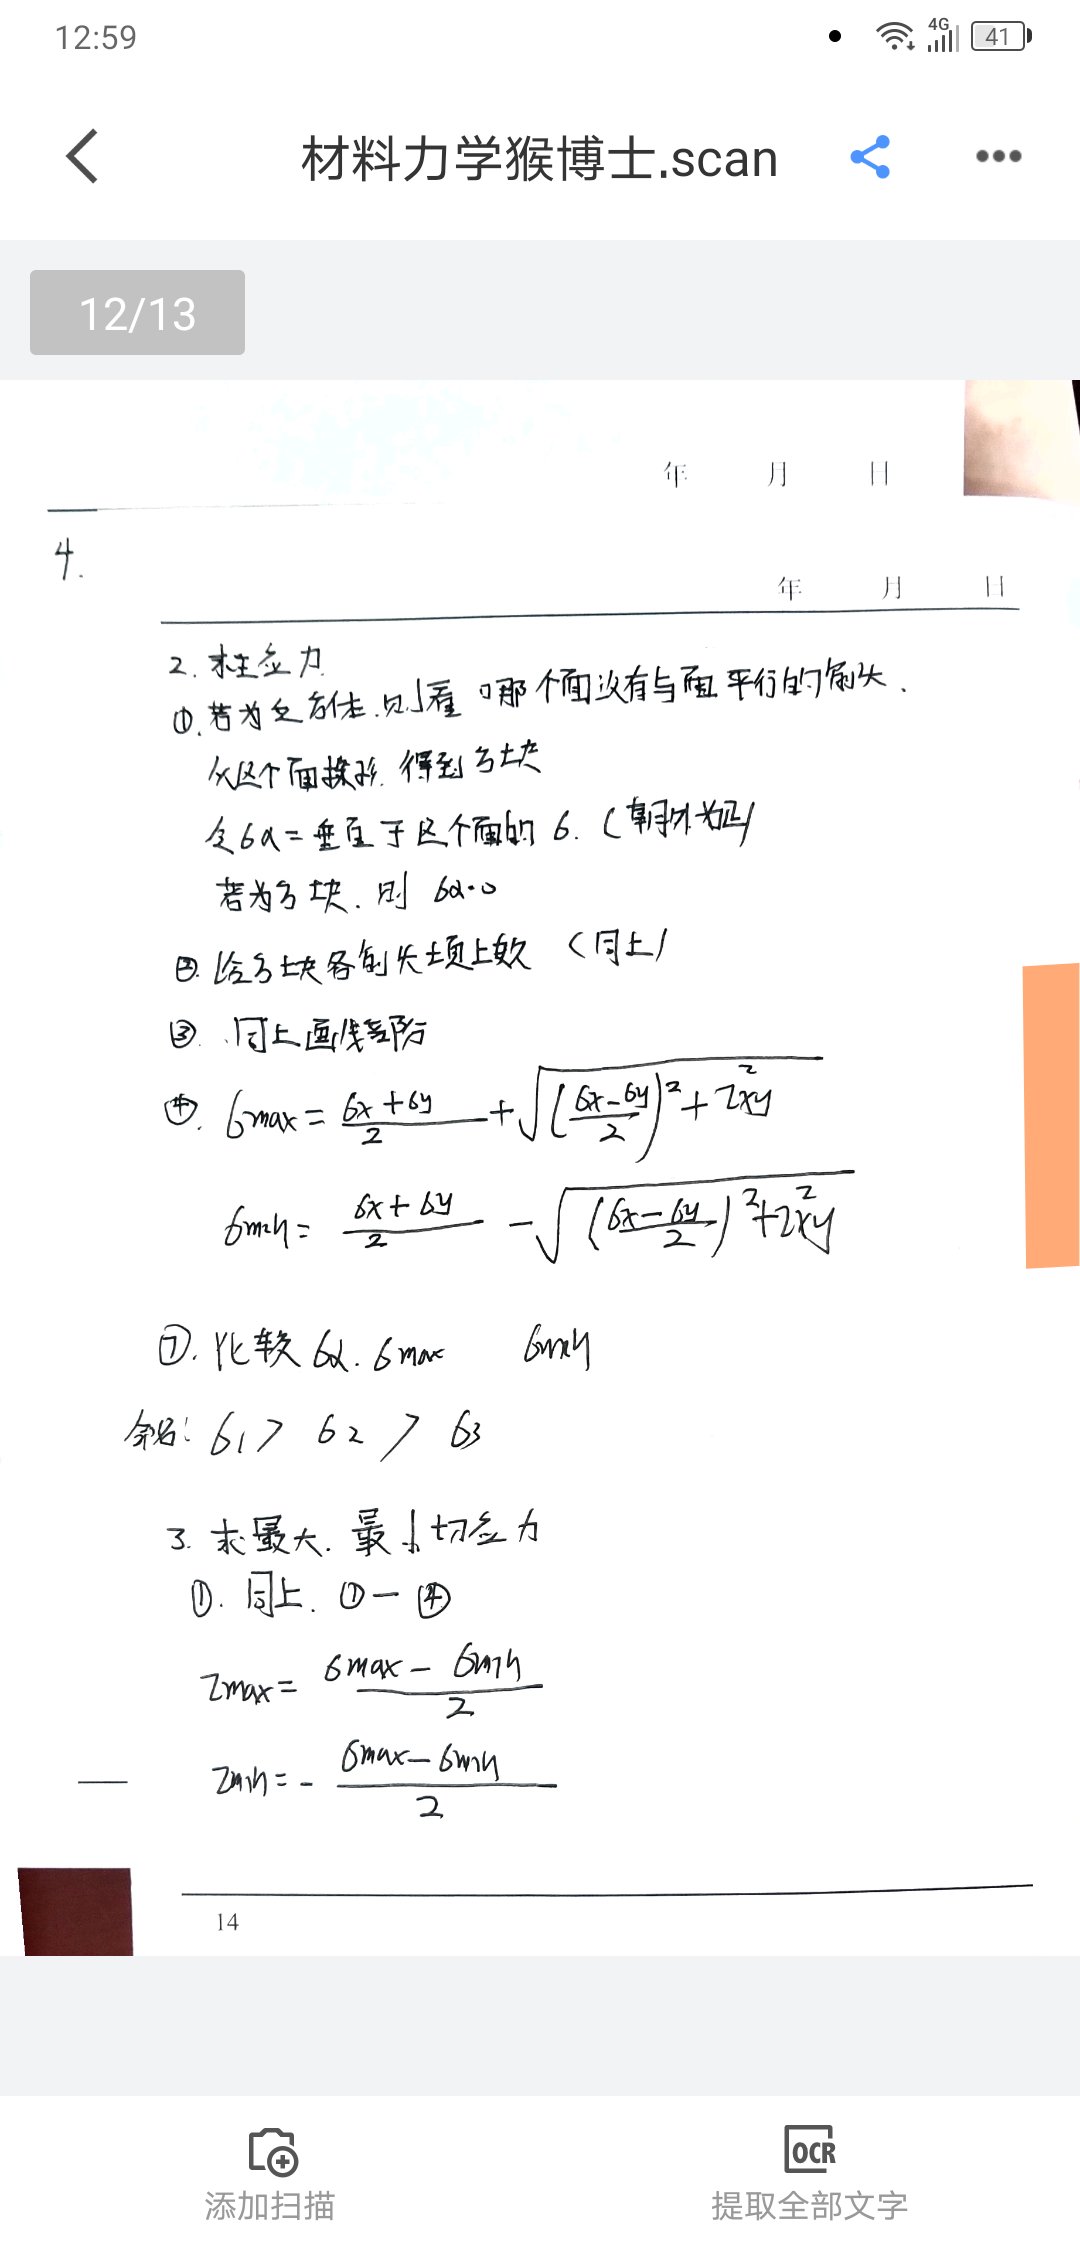 12:59
4G
41
材料力学猴博士.scan
12/13
年 月 日
4.
年 月 日
2. 主应力
①. 若为立方体.则看 哪个面没有与面平行的箭头.
从这个面投影. 得到方块
令σα=垂直于这个面的σ. (朝外为正)
若为方块. 则 σα=0
②. 给方块各箭头填上数 (同上)
③. 同上画线部分
④. σmax = σx+σy/2 + √(σx-σy/2)²+τxy²
σmin = σx+σy/2 - √(σx-σy/2)²+τxy²
⑦. 比较 σα. σmax σmin
命名: σ1 > σ2 > σ3
3. 求最大. 最小切应力
①. 同上. ①—④
τmax = σmax - σmin/2
τmin = - σmax - σmin/2
14
添加扫描
OCR
提取全部文字